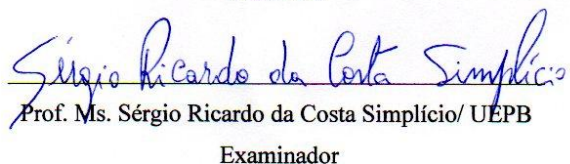 Sérgio Ricardo da Costa Simplício
Prof. Ms. Sérgio Ricardo da Costa Simplício/ UEPB
Examinador